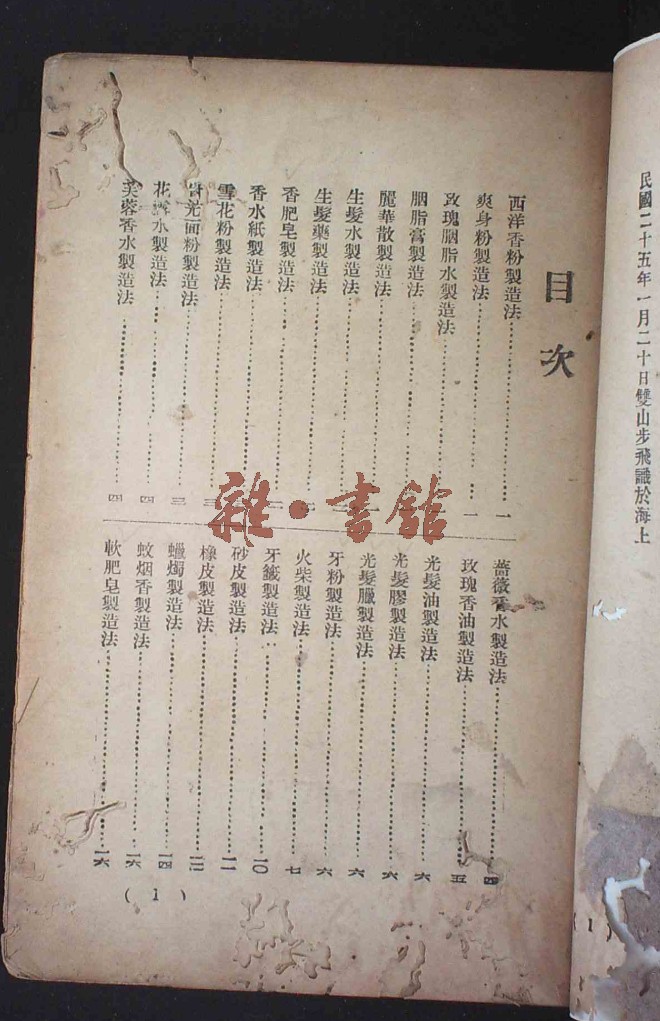 民國二十五年一月二十日雙山步飛識於海上
(1)
目次
西洋香粉製造法…………一
爽身粉製造法…………一
玫瑰胭脂水製造法…………
胭脂膏製造法…………
麗華散製造法…………
生髮水製造法…………
生髮藥製造法…………
香肥皂製造法…………
香水紙製造法…………
雪花粉製造法…………
光面粉製造法…………三
花水製造法…………四
芙蓉香水製造法…………四
薔薇香水製造法…………四
玫瑰香油製造法…………五
光髮油製造法…………六
光髮膠製造法…………六
光髮臘製造法…………六
牙粉製造法…………六
火柴製造法…………七
牙籤製造法…………一〇
砂皮製造法…………一一
橡皮製造法…………一二
蠟燭製造法…………一四
蚊烟香製造法…………一六
軟肥皂製造法…………一六
(1)
雜·書館